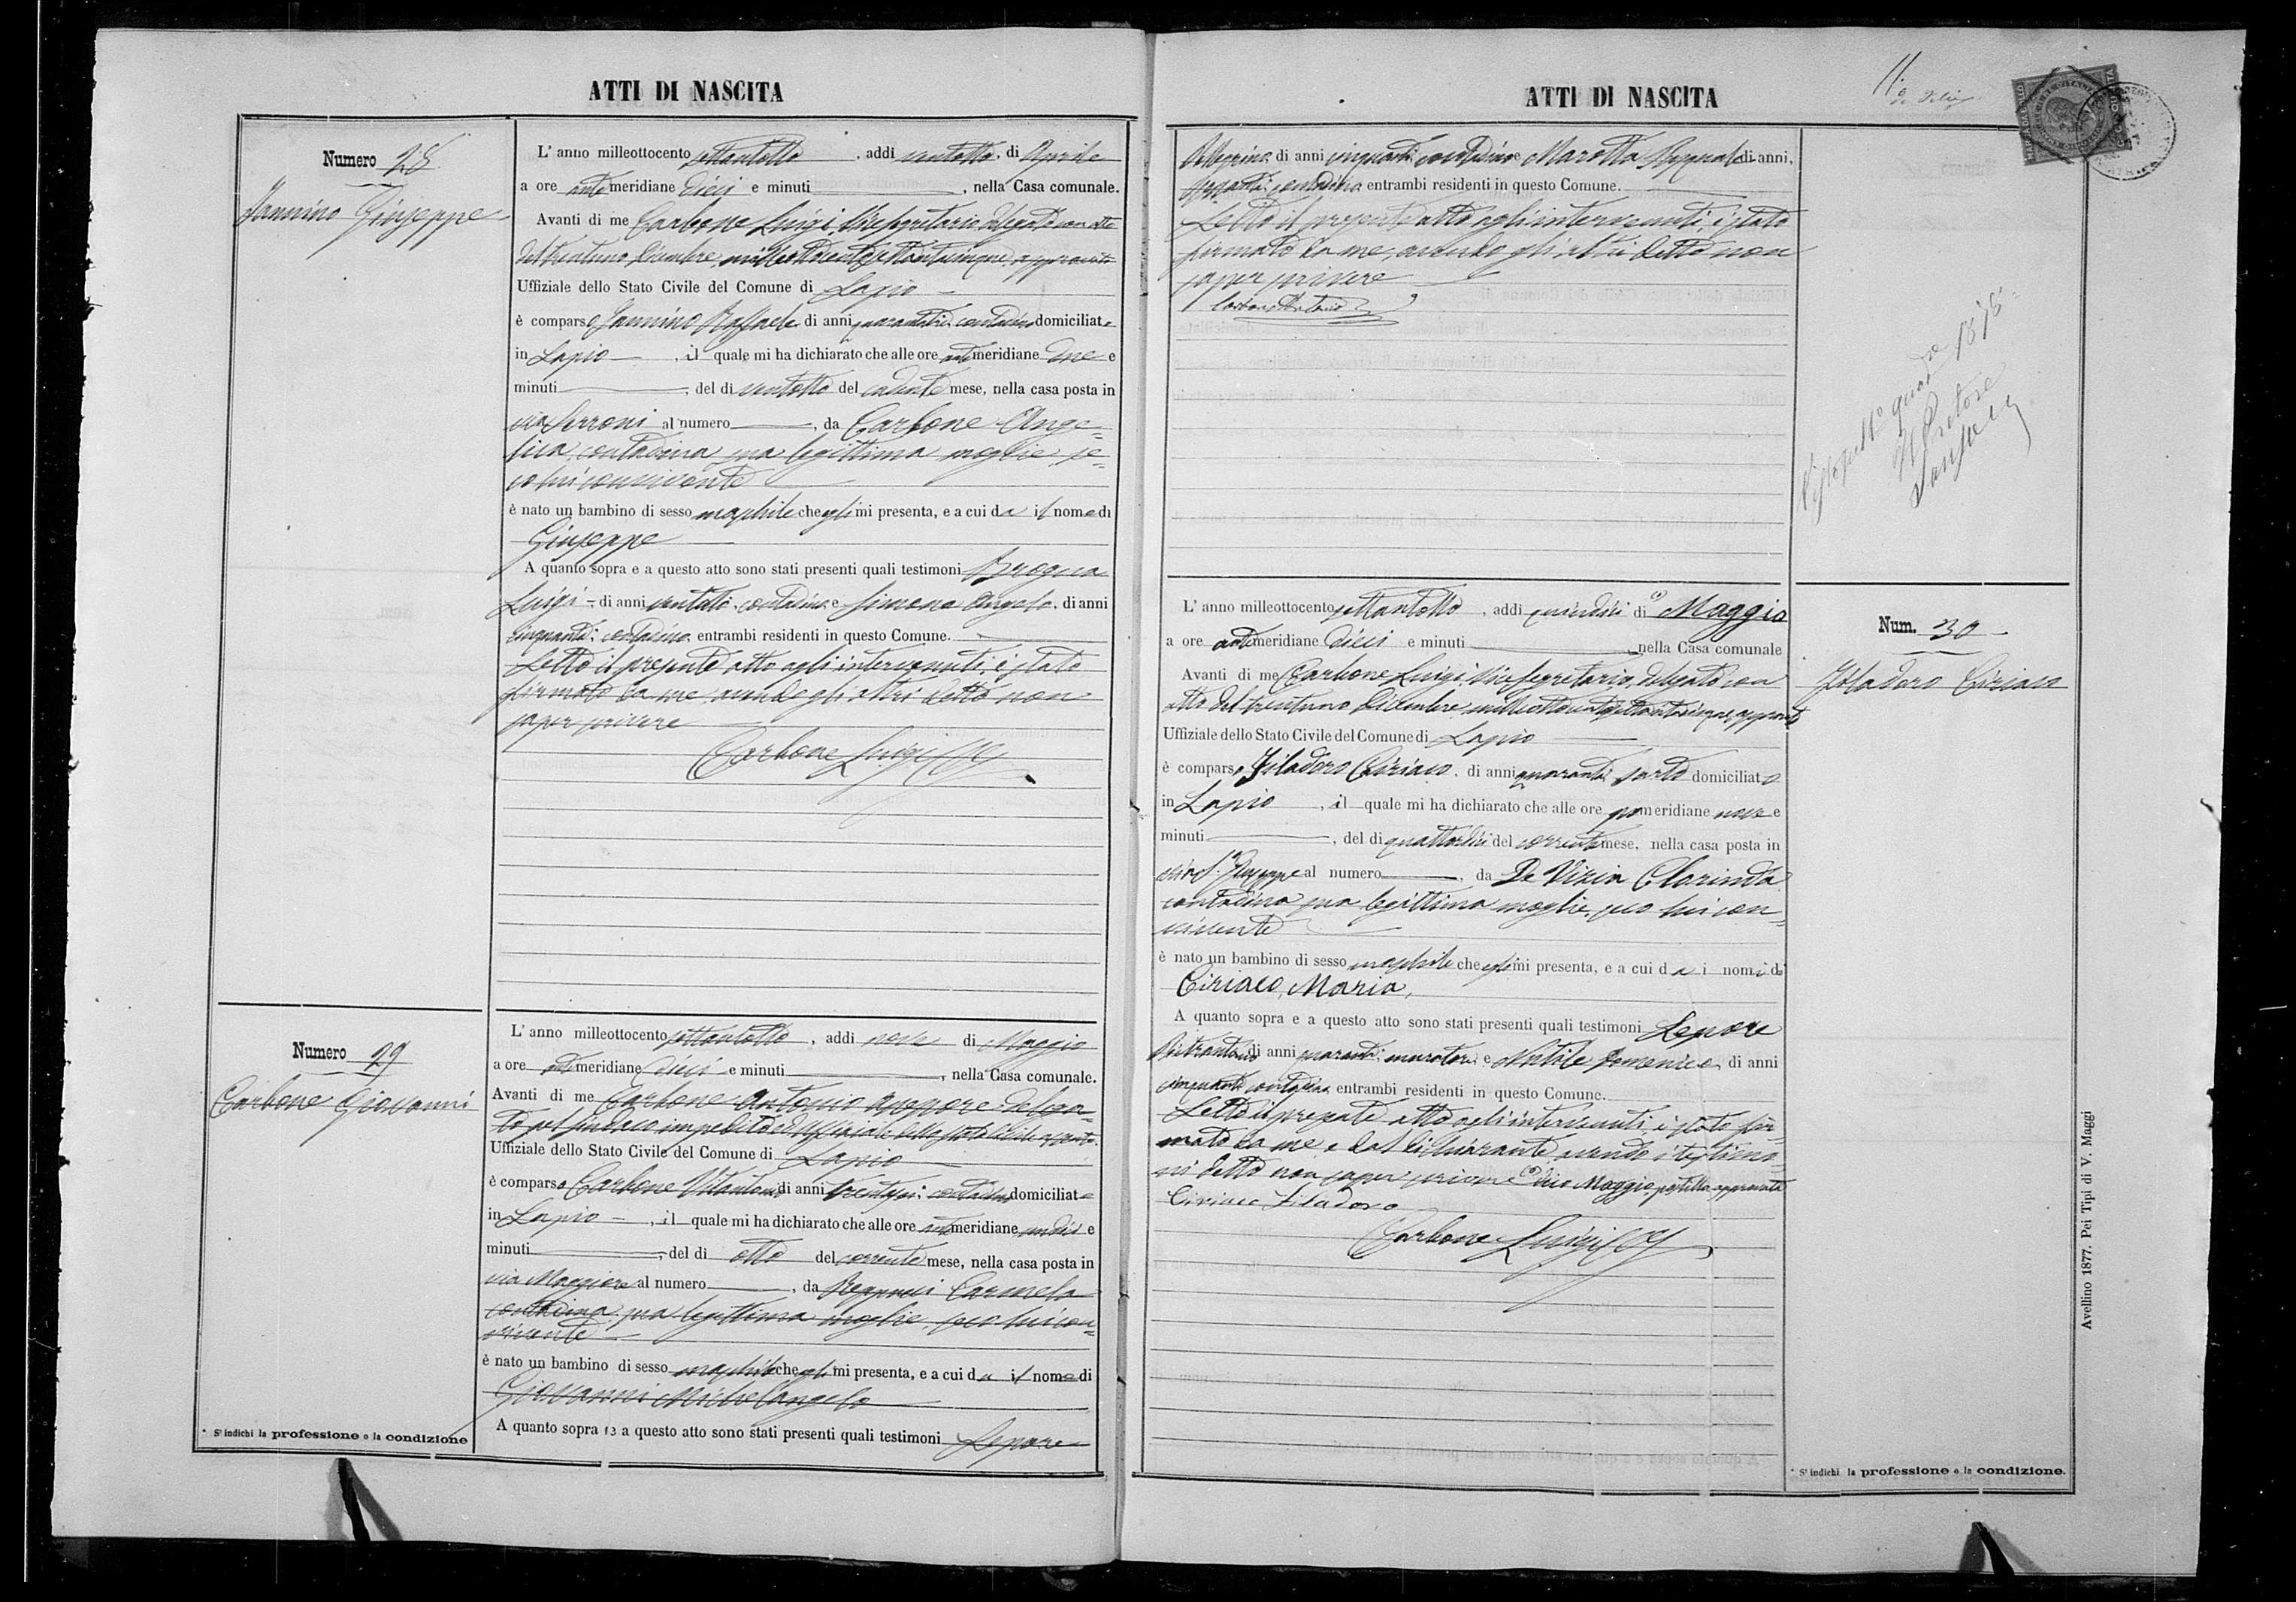 ATTI DI NASCITA
Numero 28
Iannino Giuseppe
L' anno milleottocento settantotto, addi ventotto di Aprile
a ore antimeridiane dieci e minuti, nella Casa comunale.
Avanti di me Carbone Luigi, Vicesegretario delegato con atto
del trentuno Dicembre milleottocentosettantacinque, approvato
Uffiziale dello Stato Civile del Comune di Lapio
è comparso Iannino Raffaele di anni quarantatrè contadino domiciliato
in Lapio, il quale mi ha dichiarato che alle ore antimeridiane due e
minuti, del di ventotto del cadente mese, nella casa posta in
via Serroni al numero, da Carbone Ange=
lica, contadina sua legittima moglie, se=
co lui convivente
è nato un bambino di sesso maschile che egli mi presenta, e a cui da il nome di
Giuseppe
A quanto sopra e a questo atto sono stati presenti quali testimoni Brogna
Luigi, di anni contadino e Simone Angelo, di anni
cinquanta, contadino entrambi residenti in questo Comune.
Letto il presente atto agli intervenuti, è stato
firmato da me, avendo gli altri detto non
saper scrivere
Carbone Luigi
Numero 29
Carbone Giovanni
L' anno milleottocento settantotto, addi nove di Maggio
a ore antimeridiane dieci e minuti, nella Casa comunale.
Avanti di me Carbone Antonio Assessore delega=
to pel Sindaco impedito ed Uffiziale dello Stato Civile assente
Uffiziale dello Stato Civile del Comune di Lapio
è comparso Carbone Vitantonio di anni trentasei contadino domiciliato
in Lapio, il quale mi ha dichiarato che alle ore antimeridiane undici e
minuti, del di otto del corrente mese, nella casa posta in
via Maggiore al numero, da Carmela
contadina sua legittima moglie, seco lui con=
vivente
è nato un bambino di sesso maschile che egli mi presenta, e a cui da il nome di
Giovanni Michelangelo
A quanto sopra e a questo atto sono stati presenti quali testimoni Lepore
* Si indichi la professione o la condizione
ATTI DI NASCITA
11.
Pellegrino, di anni cinquanta contadino e Marotta Pasquale di anni,
sessanta contadino entrambi residenti in questo Comune.
Letto il presente atto agli intervenuti, è stato
firmato da me, avendo gli altri detto non
saper scrivere
Carbone Antonio
1878
Il Pretore
L' anno milleottocento settantotto, addi quindici di (1) Maggio
a ore antimeridiane dieci e minuti nella Casa comunale
Avanti di me Carbone Luigi, Vicesegretario, delegato con
atto del trentuno Dicembre milleottocentosettantacinque, approvato
Uffiziale dello Stato Civile del Comune di Lapio
è comparso Filadoro Ciriaco, di anni quaranta sarto domiciliato
in Lapio, il quale mi ha dichiarato che alle ore pomeridiane nove e
minuti, del di quattordici del corrente mese, nella casa posta in
via S. Giuseppe al numero, da De Vizia Clorinda
contadina sua legittima moglie, seco lui con=
vivente
è nato un bambino di sesso maschile che egli mi presenta, e a cui da i nomi di
Ciriaco, Maria,
A quanto sopra e a questo atto sono stati presenti quali testimoni Lepore
Pietrantonio di anni quaranta, muratore e Natale Domenico di anni
cinquanta contadino entrambi residenti in questo Comune.
Letto il presente atto agli intervenuti, è stato fir=
mato da me e dal dichiarante, avendo i testimo=
ni detto non saper scrivere (1) dico Maggio, postilla approvata
Ciriaco Filadoro
Carbone Luigi
Num. 30
Filadoro Ciriaco
* Si indichi la professione o la condizione.
Avellino 1877. Pei Tipi di V. Maggi